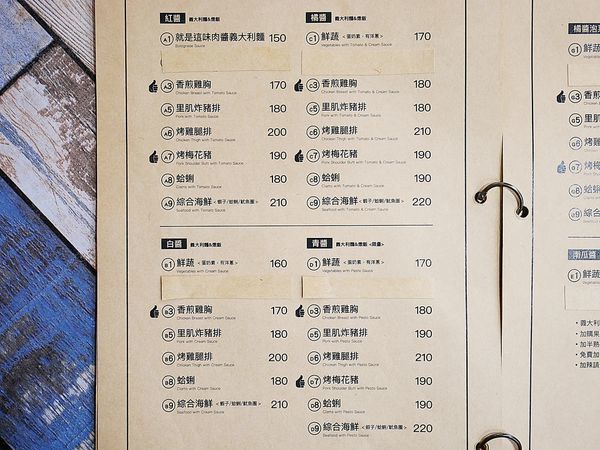 紅醬 義大利麵&燉飯
A1 就是這味肉醬義大利麵 150
Bolognese Sauce
A3 香煎雞胸 170
Chicken Breast with Tomato Sauce
A5 里肌炸豬排 180
Pork with Tomato Sauce
A6 烤雞腿排 200
Chicken Thigh with Tomato Sauce
A7 烤梅花豬 190
Pork Shoulder Butt with Tomato Sauce
A8 蛤蜊 180
Clams with Tomato Sauce
A9 綜合海鮮 <蝦子/蛤蜊/魷魚圈> 210
Seafood with Tomato Sauce
橘醬 義大利麵&燉飯
C1 鮮蔬 <蛋奶素，有洋蔥> 170
Vegetables with Tomato & Cream Sauce
C3 香煎雞胸 180
Chicken Breast with Tomato & Cream Sauce
C5 里肌炸豬排 180
Pork with Tomato & Cream Sauce
C6 烤雞腿排 210
Chicken Thigh with Tomato & Cream Sauce
C7 烤梅花豬 190
Pork Shoulder Butt with Tomato & Cream Sauce
C8 蛤蜊 180
Clams with Tomato & Cream Sauce
C9 綜合海鮮 <蝦子/蛤蜊/魷魚圈> 220
Seafood with Tomato & Cream Sauce
白醬 義大利麵&燉飯
B1 鮮蔬 <蛋奶素，有洋蔥> 160
Vegetables with Cream Sauce
B3 香煎雞胸 170
Chicken Breast with Cream Sauce
B5 里肌炸豬排 180
Pork with Cream Sauce
B6 烤雞腿排 200
Chicken Thigh with Cream Sauce
B8 蛤蜊 180
Clams with Cream Sauce
B9 綜合海鮮 <蝦子/蛤蜊/魷魚圈> 210
Seafood with Cream Sauce
青醬 義大利麵&燉飯 <限量>
D1 鮮蔬 <蛋奶素，有洋蔥> 170
Vegetables with Pesto Sauce
D3 香煎雞胸 180
Chicken Breast with Pesto Sauce
D5 里肌炸豬排 190
Pork with Pesto Sauce
D6 烤雞腿排 210
Chicken Thigh with Pesto Sauce
D7 烤梅花豬 190
Pork Shoulder Butt with Pesto Sauce
D8 蛤蜊 190
Clams with Pesto Sauce
D9 綜合海鮮 <蝦子/蛤蜊/魷魚圈> 220
Seafood with Pesto Sauce
橘醬泡
G1 鮮蔬
G3 香煎
G5 里肌
G6 烤雞
G7 烤梅
G8 蛤蜊
G9 綜合
南瓜醬
E1 鮮蔬
• 義大利
• 加購果
• 加半熟
• 免費加
• 加辣請